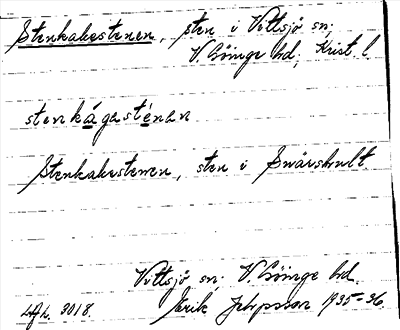 Stenkakestenen, sten i Vittsjö sn,
V. Göinge hd, Krist. l.
stenkágasténan
Stenkakestenen, sten i Snärshult.
Vittsjö sn. V. Göinge hd.
LAL. 3018. Erik Jeppsson 1935-36.